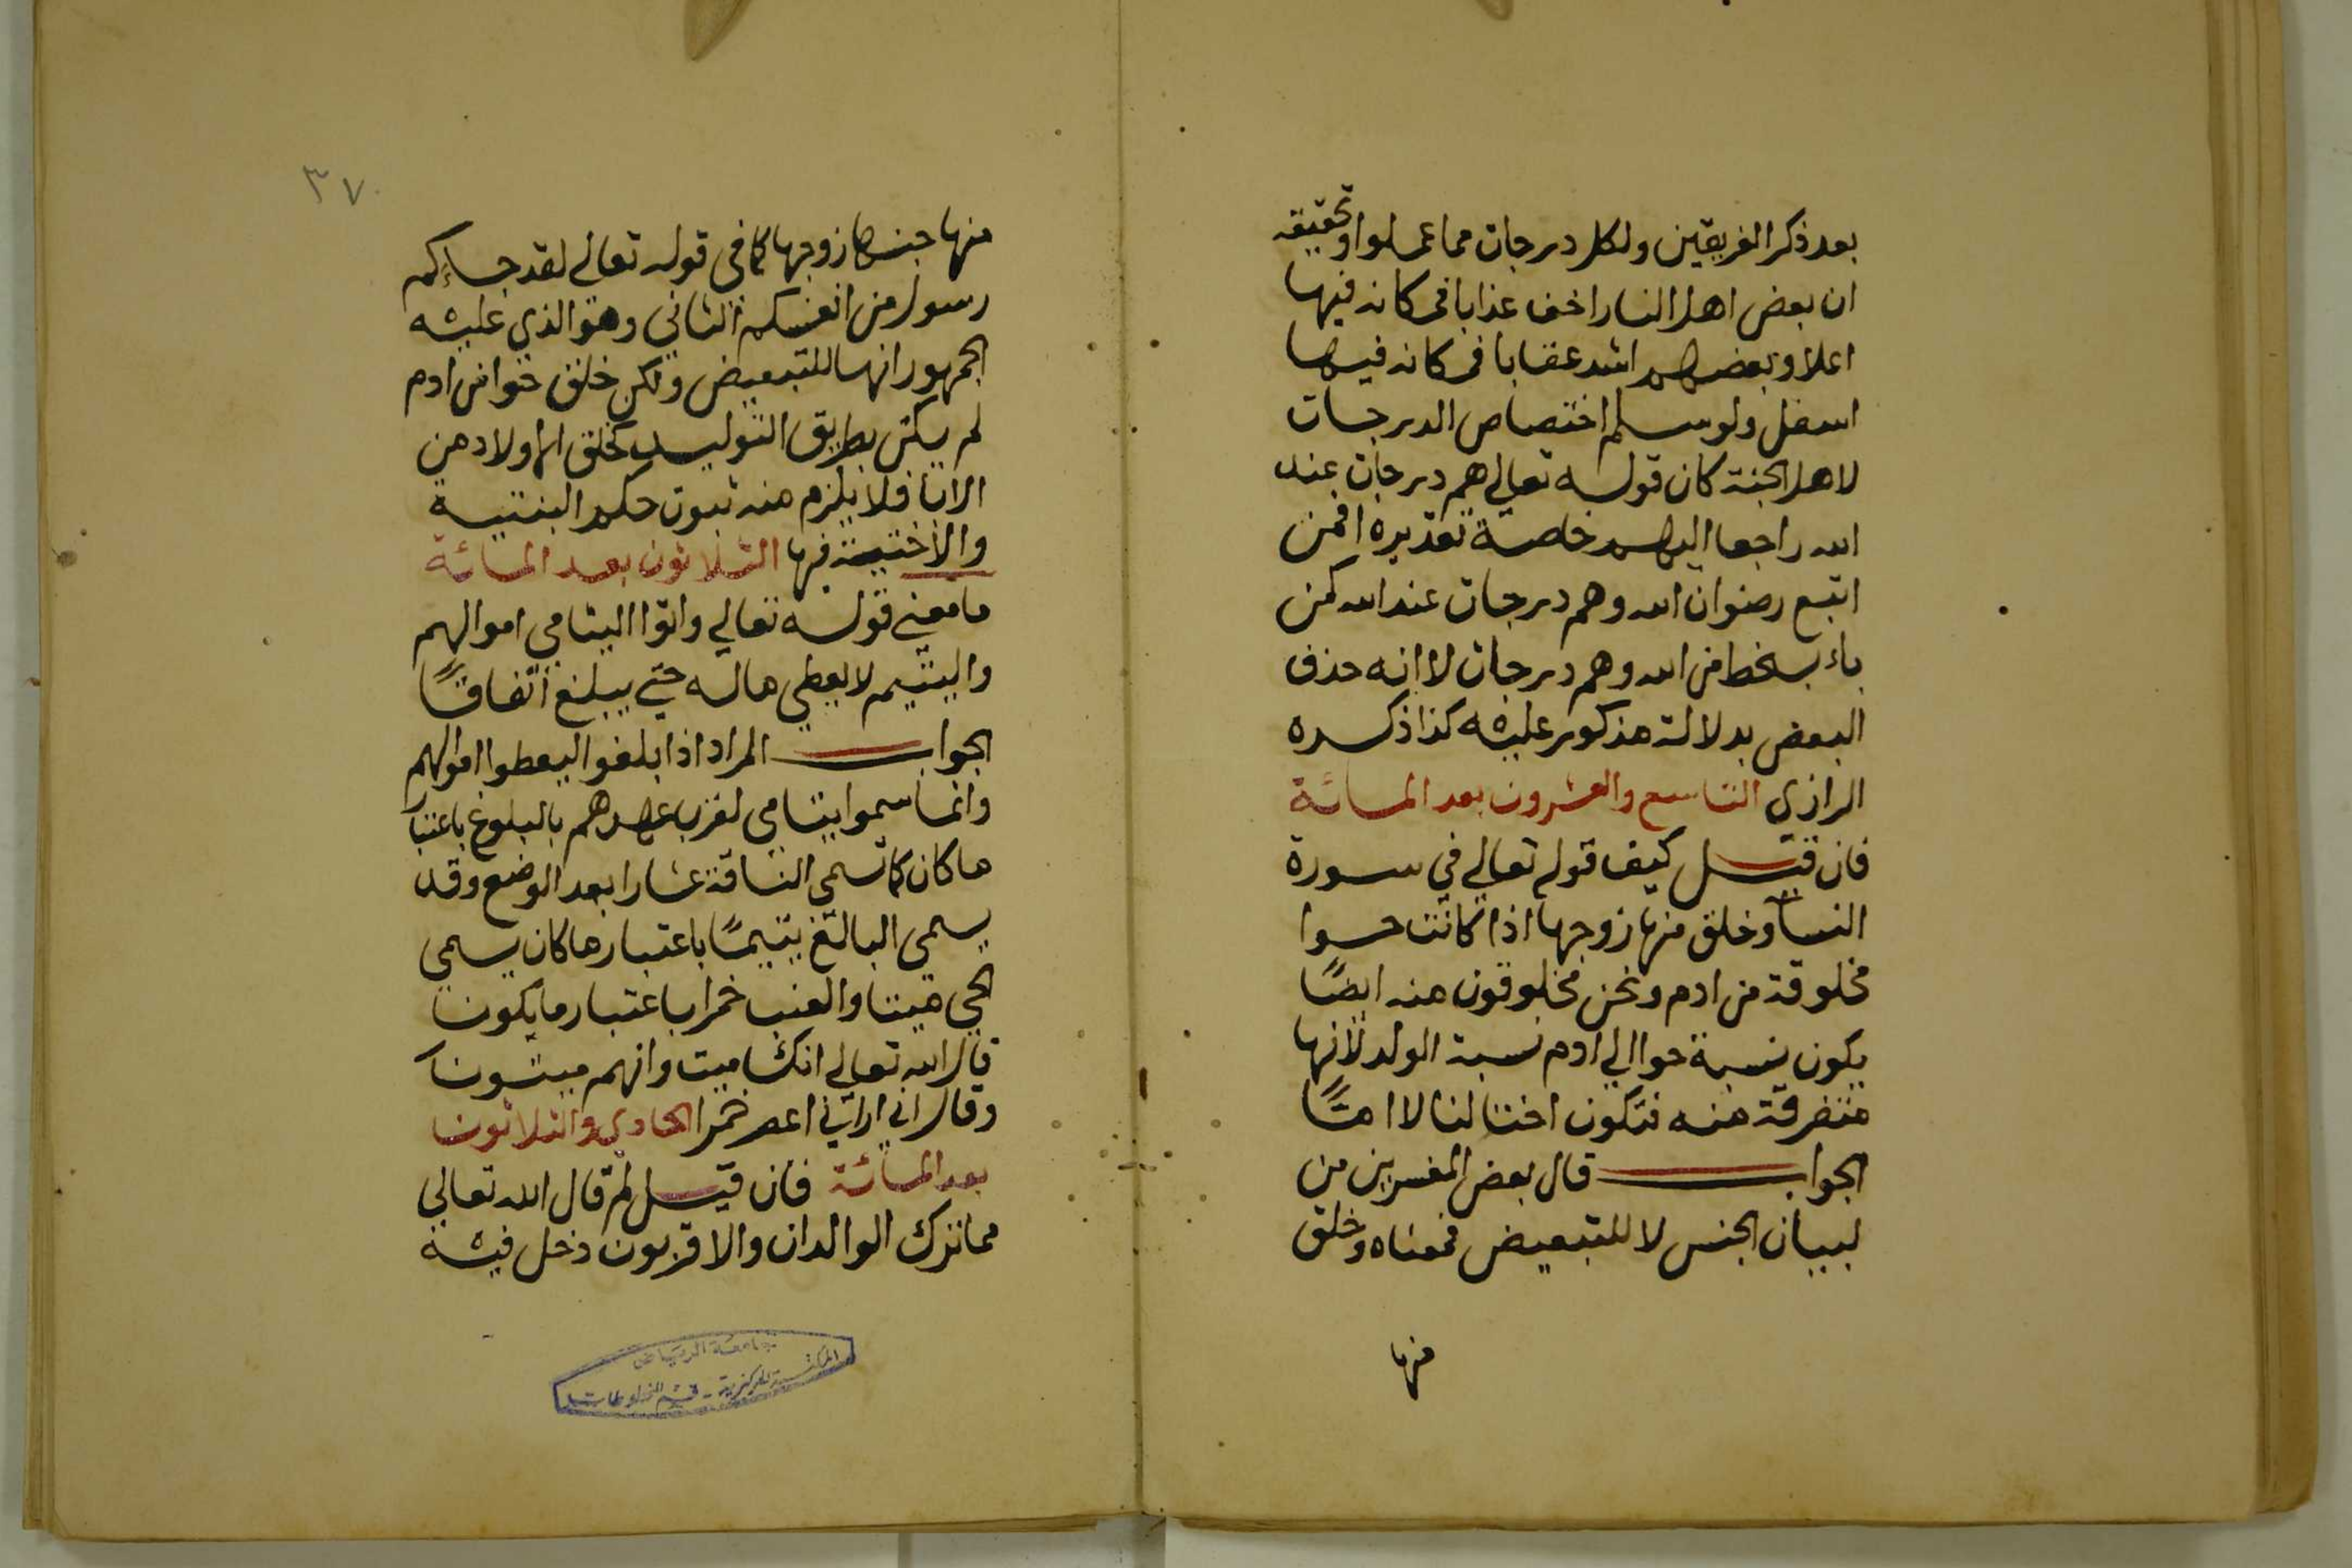 بعد ذكر الفريقين ولكل درجات مما عملوا وتحقيقه
ان بعض اهل النار اخف عذابا فمكانه فيها
اعلا وبعضهم اشد عقابا فمكانه فيها
اسفل ولو سلم اختصاص الدرجات
لاهل الجنة كان قوله تعالى هم درجات عند
الله راجعا اليهم خاصة تقديره افمن
اتبع رضوان الله وهم درجات عند الله كمن
باء بسخط من الله وهم درجات لا انه حذف
البعض بدلالة مذكور عليه كذا ذكره
الرازي التاسع والعشرون بعد المائة
فان قيل كيف قوله تعالى في سورة
النساء وخلق منها زوجها اذا كانت حوا
مخلوقة من ادم ونحن مخلوقون منه ايضًا
يكون نسبة حوا الي ادم نسبة الولد لأنها
متفرقة منه فتكون اختا لنا لا امًّا
الجواب قال بعض المفسرين من
لبيان الجنس لا للتبعيض فمعناه وخلق
منها
٣٧
منها جنسها زوجها كما في قوله تعالى لقد جاءكم
رسول من انفسكم الثاني وهو الذي عليه
الجمهور انها للتبعيض ولكن خلق حوا من ادم
لم يكن بطريق التوليد كخلق الاولاد من
الابا فلا يلزم منه ثبوت حكم البنتية
والأختية فيها الثلاثون بعد المائة
ما معني قوله تعالي واتوا اليتامي اموالهم
واليتيم لا يعطي ماله حتي يبلغ اتفاقًا
الجواب المراد اذا بلغوا ليعطوا اموالهم
وانما سموا يتامي لقرب عهدهم بالبلوغ باعتبار
ما كان كما تسمي الناقة عشارا بعد الوضع وقد
يسمي البالغ يتيمًا باعتبار ما كان يسمي
الحي ميتا والعنب خمرا باعتبار ما يكون
قال الله تعالي انك ميت وانهم ميتون
وقال اني اراني اعصر خمرا الحادي والثلاثون
بعد المائة فان قيل لم قال الله تعالي
مما ترك الوالدان والاقربون دخل فيه
جامعة الرياض
المكتبة المركزية - قسم المخطوطات